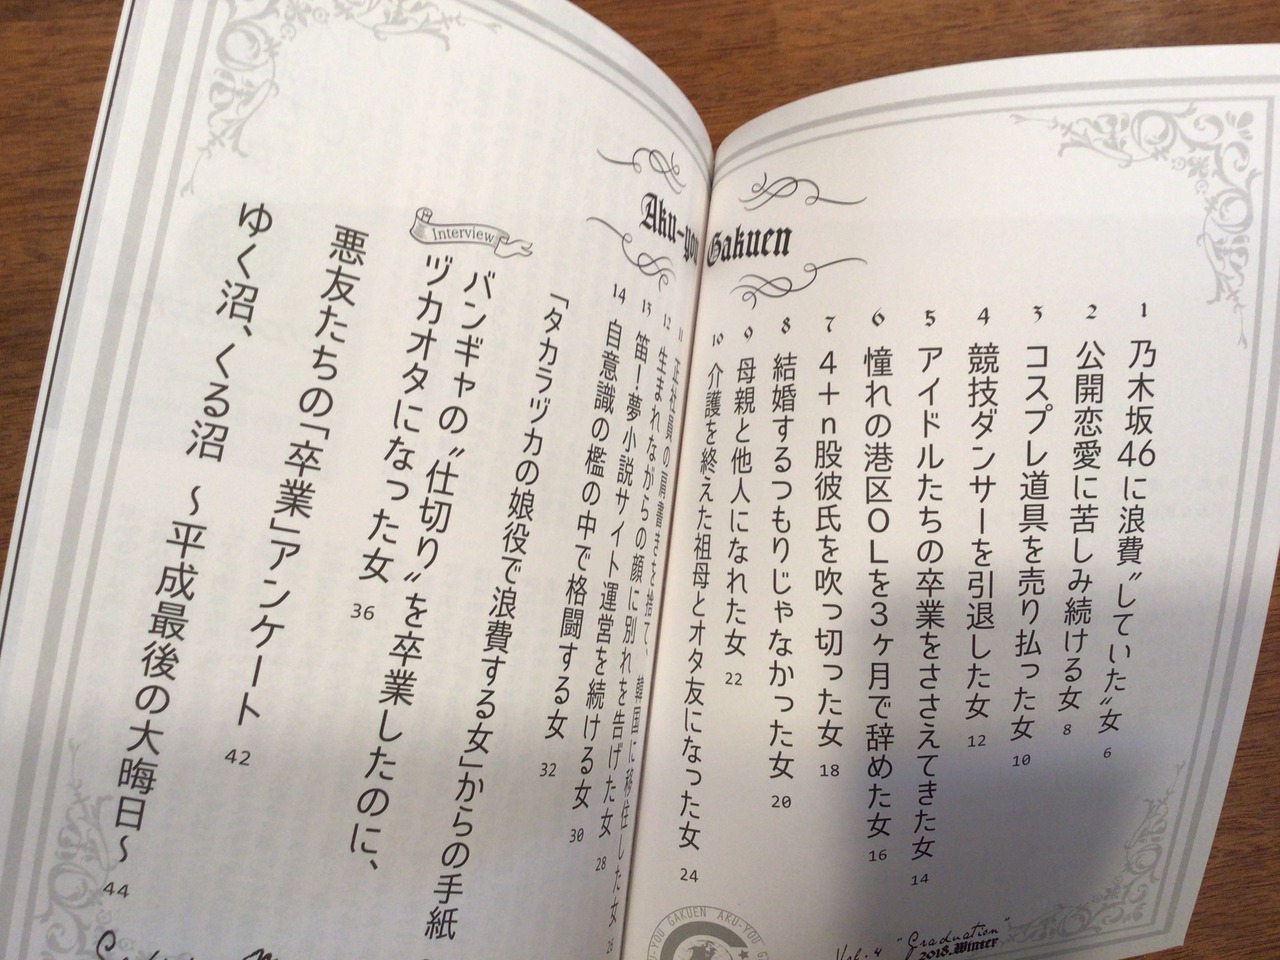 Aku-you Gakuen
1 乃木坂46に浪費〝していた〟女 6
2 公開恋愛に苦しみ続ける女 8
3 コスプレ道具を売り払った女 10
4 競技ダンサーを引退した女 12
5 アイドルたちの卒業をささえてきた女 14
6 憧れの港区OLを3ヶ月で辞めた女 16
7 4+n股彼氏を吹っ切った女 18
8 結婚するつもりじゃなかった女 20
9 母親と他人になれた女 22
10 介護を終えた祖母とオタ友になった女 24
11 正社員の肩書きを捨て、韓国に移住した女 26
12 生まれながらの顔に別れを告げた女 28
13 笛!夢小説サイト運営を続ける女 30
14 自意識の檻の中で格闘する女 32
「タカラヅカの娘役で浪費する女」からの手紙
Interview
バンギャの〝仕切り〟を卒業したのに、
ヅカオタになった女 36
悪友たちの「卒業」アンケート 42
ゆく沼、くる沼 〜平成最後の大晦日〜 44
YOU GAKUEN AKU-YOU
Vol.4 "Graduation"
2018.Winter